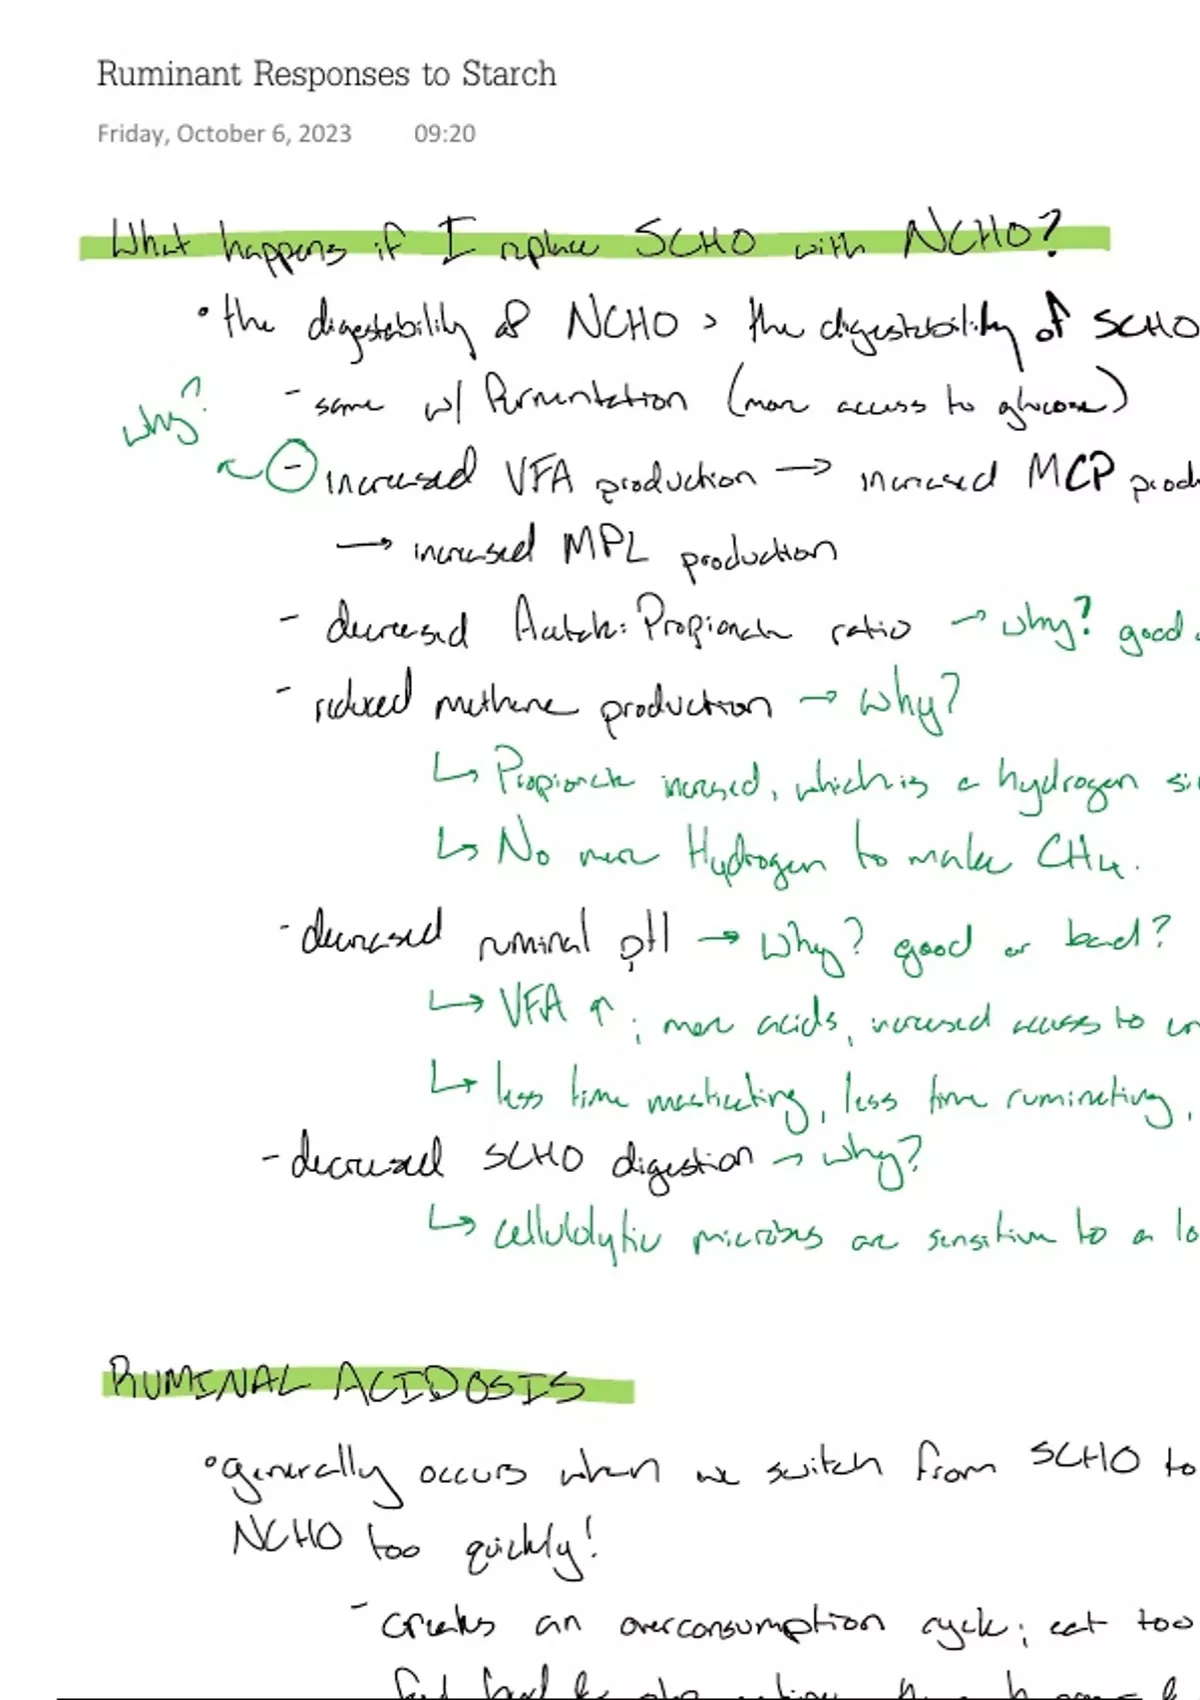 Ruminant Responses to Starch
Friday, October 6, 2023 09:20
What happens if I replace SCHO with NCHO?
• the digestability of NCHO > the digestability of SCHO
why?
- same w/ fermentation (more access to glucose)
- increased VFA production → increased MCP prod
→ increased MPL production
- decreased Acetate:Propionate ratio → why? good
- reduced methane production → why?
↳ Propionate increased, which is a hydrogen si
↳ No more Hydrogen to make CH4.
- decreased ruminal pH → Why? good or bad?
↳ VFA ↑; more acids, increased access to
↳ less time masticating, less time ruminating,
- decreased SCHO digestion → why?
↳ cellulolytic microbes are sensitive to a lo
RUMINAL ACIDOSIS
• generally occurs when we switch from SCHO to
NCHO too quickly!
- creates an overconsumption cycle; eat too